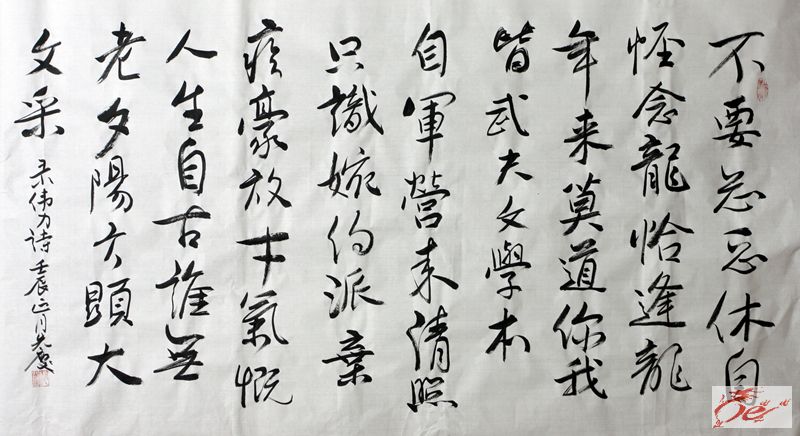 不要休自
怪念龍恰逢龍
年来莫道你我
皆武夫文學本
自軍營来清照
只識婉约派棄
疾豪放才氣慨
人生自古誰無
老夕陽方顕大
文采
录伟力诗壬辰正月